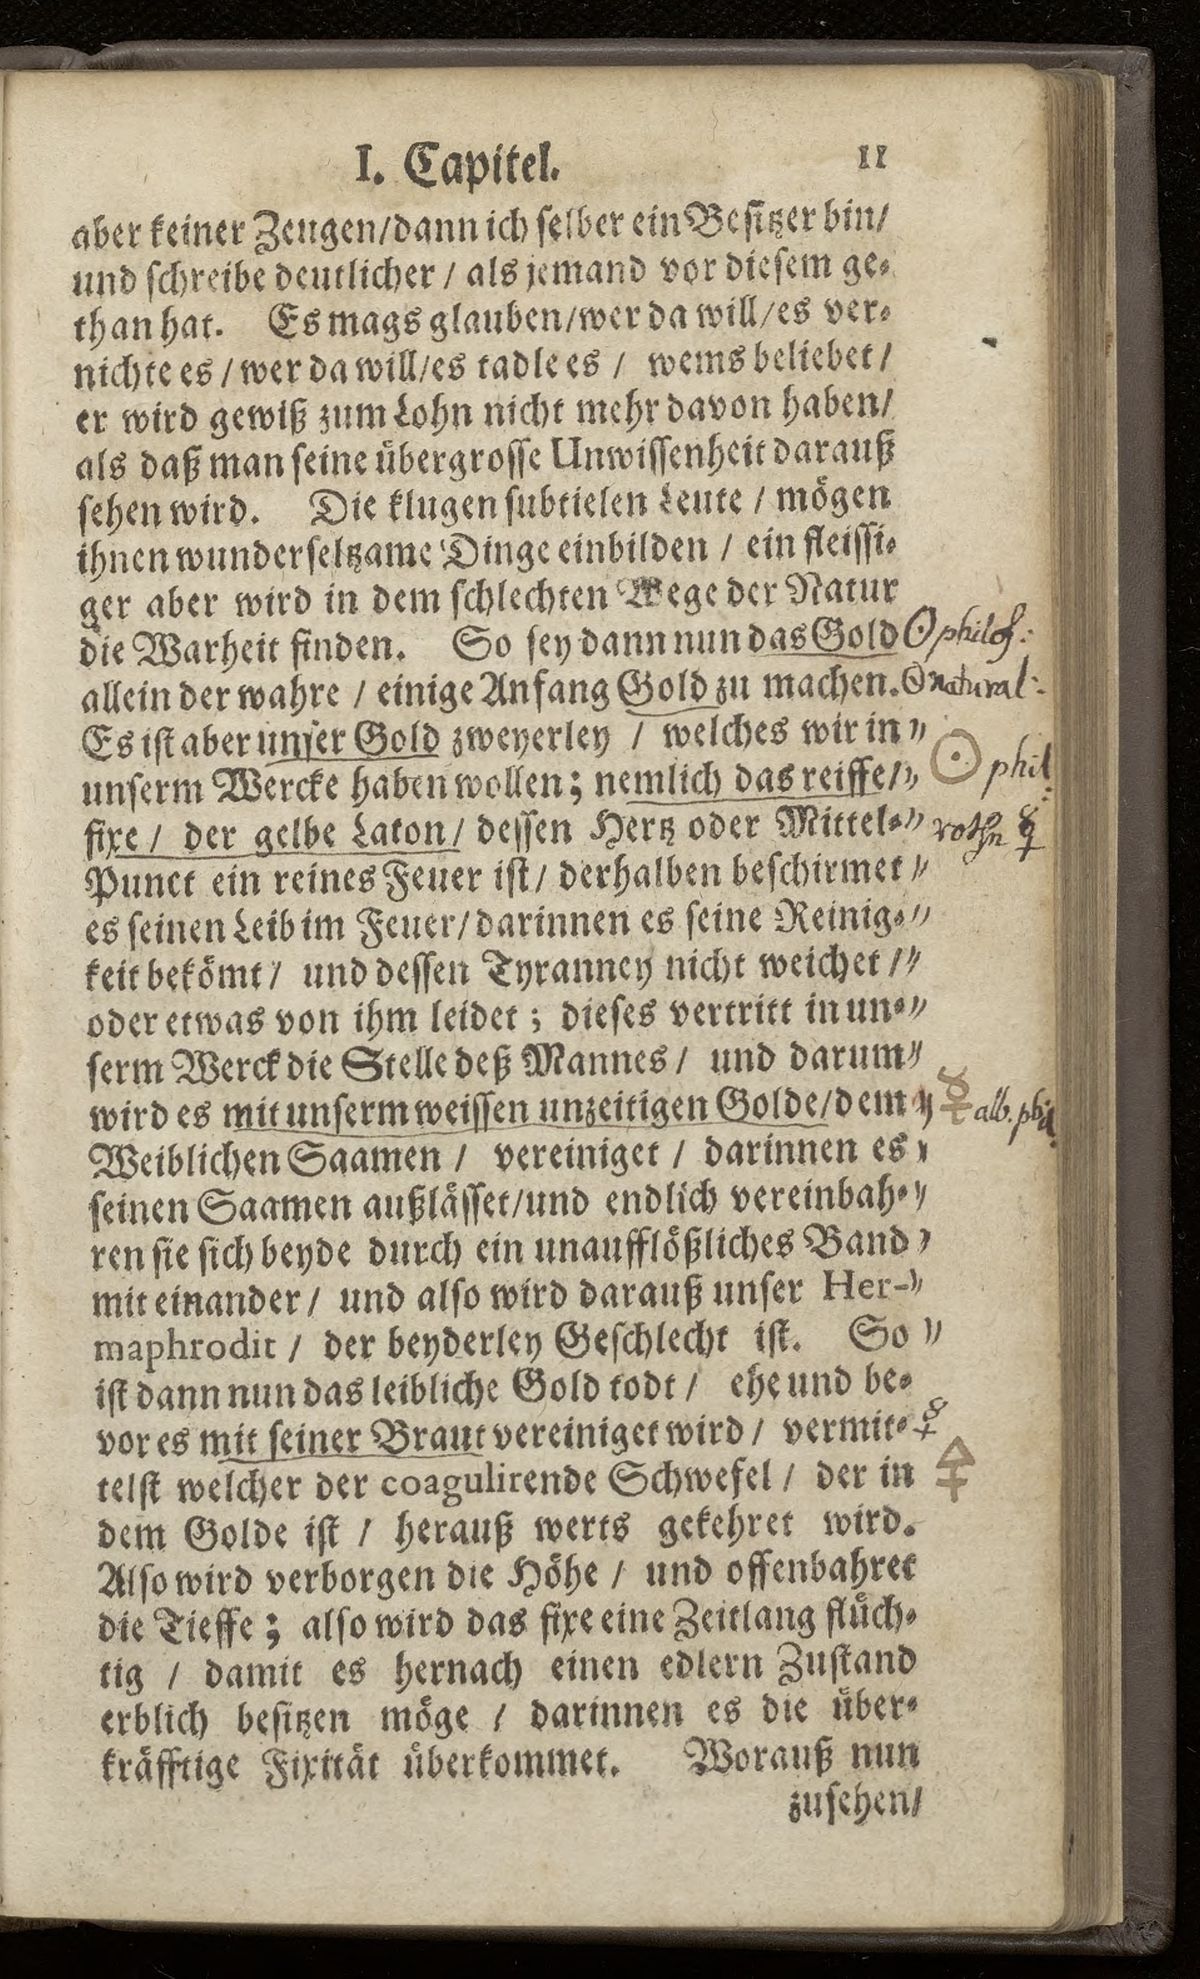 I. Capitel. 11
aber keiner Zeugen/dann ich selber ein Besitzer bin/
und schreibe deutlicher / als jemand vor diesem ge-
than hat. Es mags glauben/wer da will/es ver-
nichte es / wer da will/es tadle es / wems beliebet /
er wird gewiß zum Lohn nicht mehr davon haben/
als daß man seine übergrosse Unwissenheit darauß
sehen wird. Die klugen subtielen Leute / mögen
ihnen wunderseltzame Dinge einbilden / ein fleissi-
ger aber wird in dem schlechten Wege der Natur
die Warheit finden. So sey dann nun das Gold ☉ philos:
allein der wahre / einige Anfang Gold zu machen. ☉ natural:
Es ist aber unser Gold zweyerley / welches wir in "
unserm Wercke haben wollen; nemlich das reiffe/ " ☉ phil:
fixe / der gelbe Laton/ dessen Hertz oder Mittel- " rothr ☿
Punct ein reines Feuer ist/ derhalben beschirmet "
es seinen Leib im Feuer/darinnen es seine Reinig- "
keit bekömt/ und dessen Tyranney nicht weichet / "
oder etwas von ihm leidet; dieses vertritt in un- "
serm Werck die Stelle deß Mannes / und darum "
wird es mit unserm weissen unzeitigen Golde/dem " ☿ alb. phil.
Weiblichen Saamen / vereiniget / darinnen es "
seinen Saamen außlässet/und endlich vereinbah- "
ren sie sich beyde durch ein unaufflößliches Band "
mit einander / und also wird darauß unser Her- "
maphrodit / der beyderley Geschlecht ist. So "
ist dann nun das leibliche Gold todt / ehe und be-
vor es mit seiner Braut vereiniget wird / vermit- ☿
telst welcher der coagulirende Schwefel / der in 🜍
dem Golde ist / herauß werts gekehret wird.
Also wird verborgen die Höhe / und offenbahret
die Tieffe; also wird das fixe eine Zeitlang flüch-
tig / damit es hernach einen edlern Zustand
erblich besitzen möge / darinnen es die über-
kräfftige Fixität überkommet. Worauß nun
zusehen/